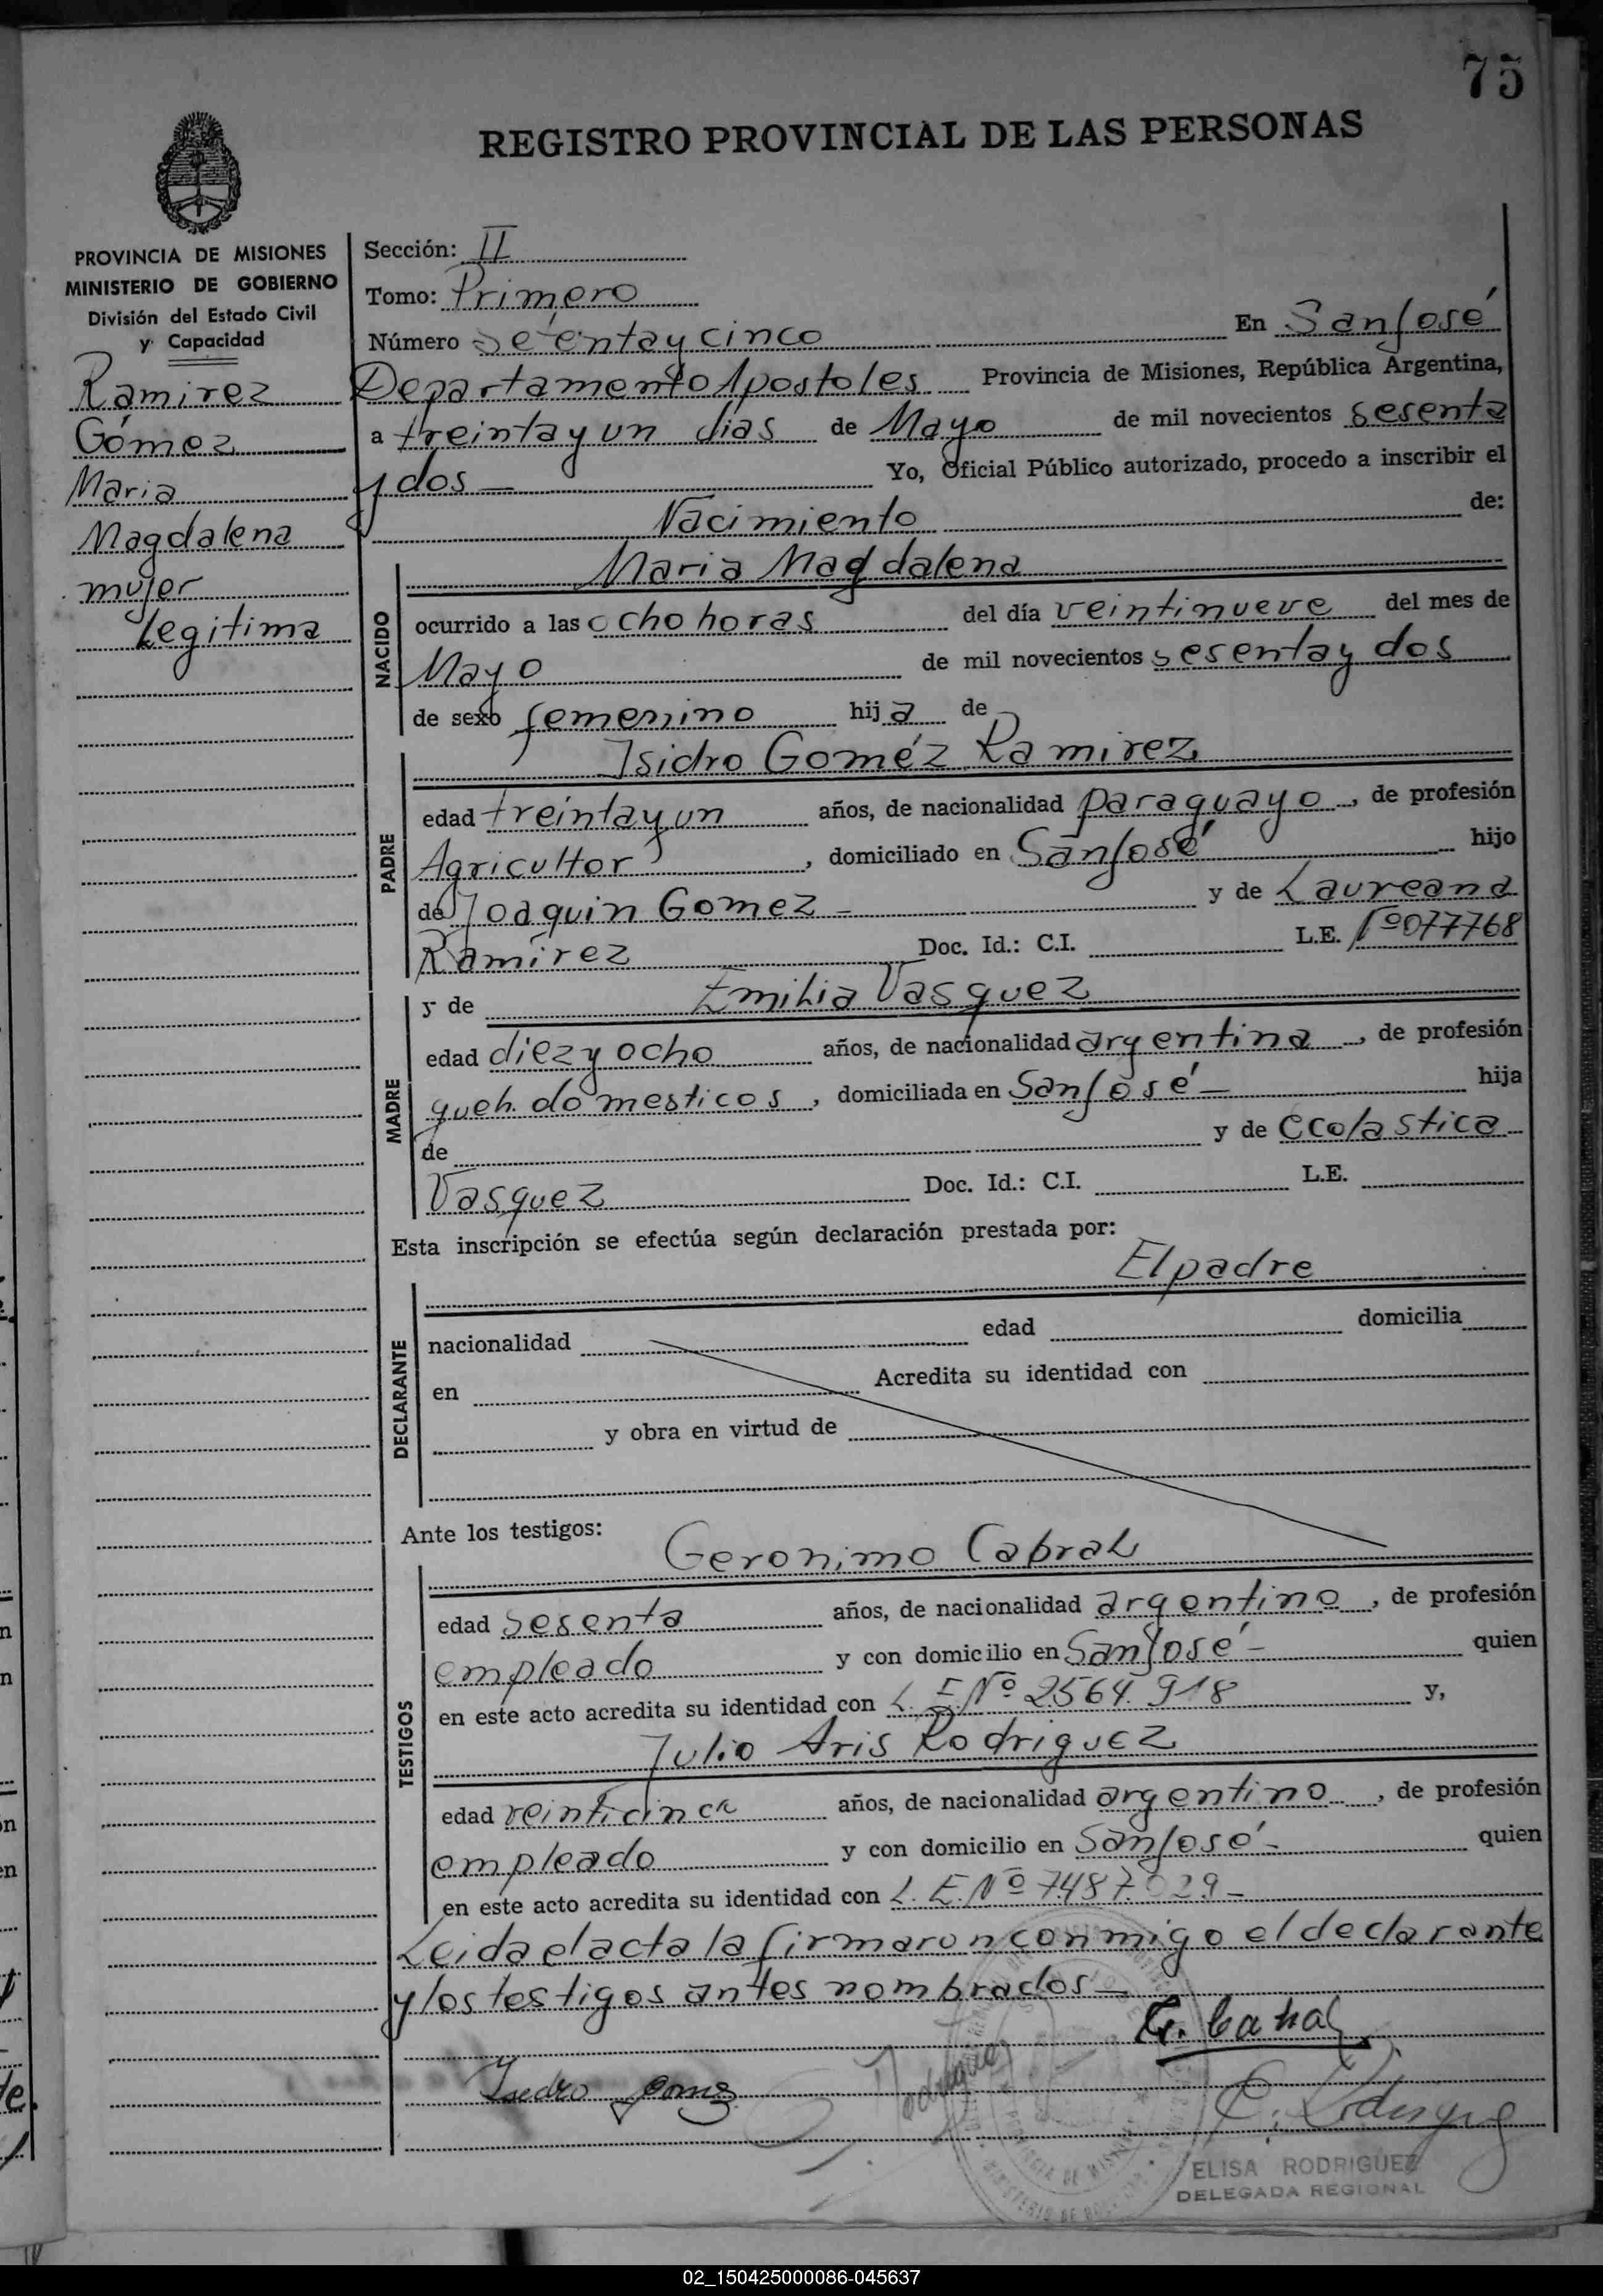 75
REGISTRO PROVINCIAL DE LAS PERSONAS
PROVINCIA DE MISIONES
MINISTERIO DE GOBIERNO
División del Estado Civil
y Capacidad
Ramirez
Gómez
Maria
Magdalena
mujer
Legitima
Sección: II
Tomo: Primero
Número Setenta y cinco En San José
Departamento Apostoles Provincia de Misiones, República Argentina,
a treinta y un dias de Mayo de mil novecientos sesenta
y dos Yo, Oficial Público autorizado, procedo a inscribir el
Nacimiento de:
NACIDO
Maria Magdalena
ocurrido a las ocho horas del día veintinueve del mes de
Mayo de mil novecientos sesenta y dos
de sexo femenino hija de
PADRE
Isidro Goméz Ramirez
edad treinta y un años, de nacionalidad paraguayo, de profesión
Agricultor, domiciliado en San José hijo
de Joaquin Gomez - y de Laureana
Ramírez Doc. Id.: C.I. L.E. Nº 077768
MADRE
y de Emilia Vasquez
edad diez y ocho años, de nacionalidad argentina, de profesión
queh. domesticos, domiciliada en San José - hija
de y de Ccolastica
Vasquez Doc. Id.: C.I. L.E.
Esta inscripción se efectúa según declaración prestada por:
El padre
DECLARANTE
nacionalidad edad domicilia
en Acredita su identidad con
y obra en virtud de
Ante los testigos:
TESTIGOS
Geronimo Cabral
edad sesenta años, de nacionalidad argentino, de profesión
empleado y con domicilio en San José - quien
en este acto acredita su identidad con L. E. Nº 2564.918 y,
Julio Aris Rodriguez
edad veinticinco años, de nacionalidad argentino, de profesión
empleado y con domicilio en San José - quien
en este acto acredita su identidad con L. E. Nº 7.487.029 -
Leida el acta la firmaron conmigo el declarante
y los testigos antes nombrados -
G. Cabral
Isidro Gomez
J. Rodriguez
E. Rodriguez
ELISA RODRIGUEZ
DELEGADA REGIONAL
02_150425000086-045637